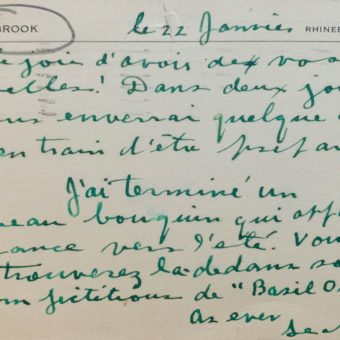 BROOK
le 22 Janvier
RHINEB
joie d'avoir de vo
elles! Dans deux jo
us enverrai quelque
en train d'être prépa
J'ai terminé un
eau bouquin qui app
ance vers l'été. Vou
trouverez la-dedans so
om fictitious de "Basil O
As ever